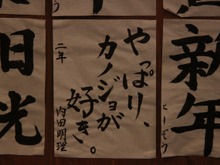 やっぱり、
カノジョが
好き。
二年
内田明理
新年
日光